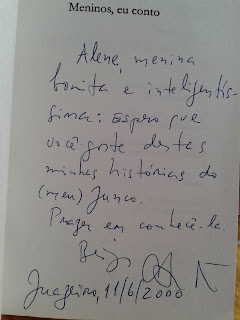 Meninos, eu conto
Alene, menina
bonita e inteligentís-
sima: Espero que
você goste destas
minhas histórias do
(meu) Junco.
Prazer em conhecê-la.
Juazeiro, 11/6/2000